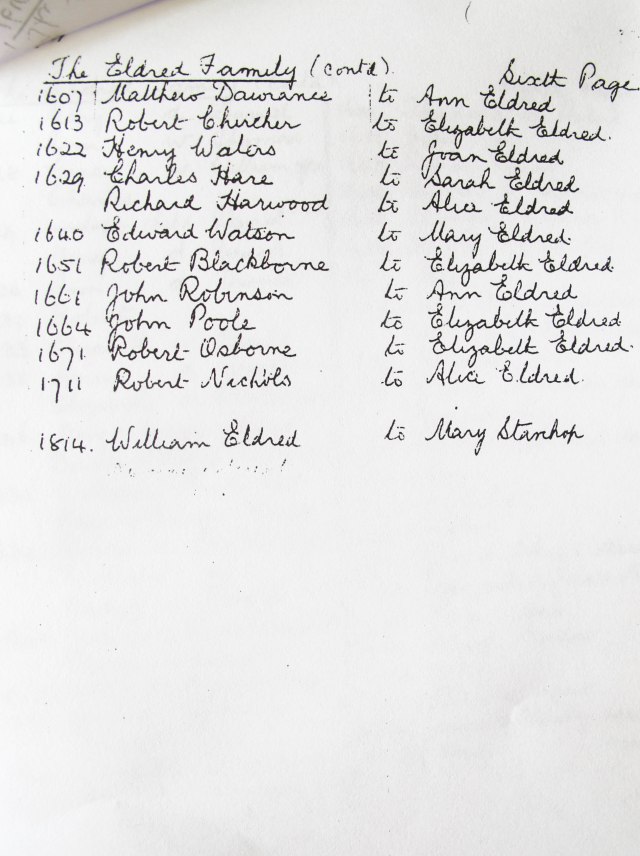 The Eldred Family (contd). Sixth Page
1607 Matthew Dawrance to Ann Eldred
1613 Robert to Elizabeth Eldred.
1622 Henry Waters to Joan Eldred
1629 Charles Hare to Sarah Eldred
Richard Harwood to Alice Eldred
1640 Edward Watson to Mary Eldred.
1651 Robert Blackborne to Elizabeth Eldred.
1661 John Robinson to Ann Eldred
1664 John Poole to Elizabeth Eldred
1671 Robert Osborne to Elizabeth Eldred.
1711 Robert Nichols to Alice Eldred.
1814. William Eldred to Mary Stanhop